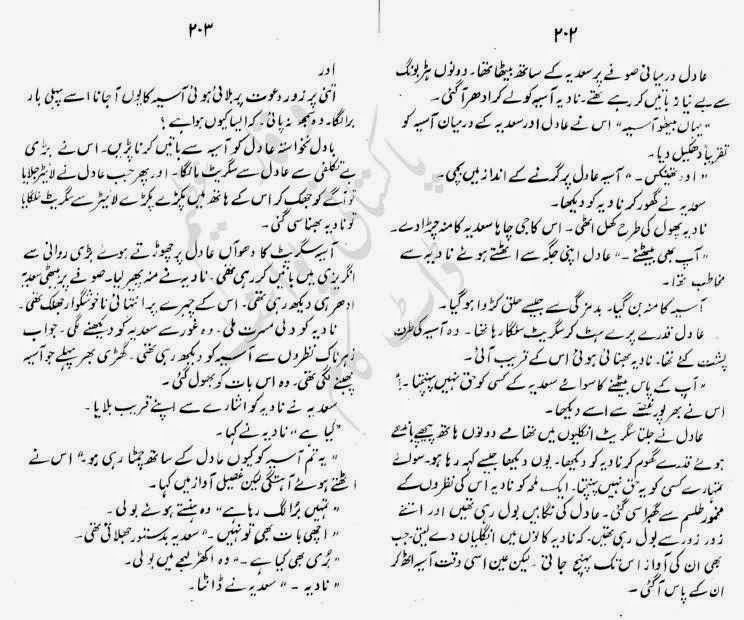 ۲۰۲
عادل درمیانی صوفے پر سعدیہ کے ساتھ بیٹھا تھا۔ دونوں ہڑبونگ
سے بے نیاز باتیں کر رہے تھے۔ نادیہ آسیہ کو لے کر ادھر آ گئی۔
"یہاں بیٹھو آسیہ" اس نے عادل اور سعدیہ کے درمیان آسیہ کو
تقریباً دھکیل دیا۔
"اوہ تھینکس۔" آسیہ عادل پر گرنے کے انداز میں بچی۔
سعدیہ نے گھور کر نادیہ کو دیکھا۔
نادیہ پھول کی طرح کھل اٹھی۔ اس کا جی چاہا سعدیہ کا منہ چڑا دے۔
"آپ بھی بیٹھئے۔" عادل اپنی جگہ سے اٹھتے ہوئے نادیہ سے
مخاطب ہوا۔
آسیہ کا منہ بن گیا۔ بدمزگی سے جیسے حلق کڑوا ہو گیا۔
عادل قدرے پرے ہٹ کر سگریٹ سلگا رہا تھا۔ وہ آسیہ کی طرف
پشت کئے تھا۔ نادیہ بھناتی ہوئی اس کے قریب آئی۔
"آپ کے پاس بیٹھنے کا سوائے سعدیہ کے کسی کو حق نہیں پہنچتا۔"
اس نے بھرپور غصے سے اسے دیکھا۔
عادل نے جلتا سگریٹ انگلیوں میں تھامے دونوں ہاتھ پیچھے باندھتے
ہوئے قدرے گھوم کر نادیہ کو دیکھا۔ یوں دیکھا جیسے کہہ رہا ہو۔ سوائے
تمہارے کسی کو یہ حق نہیں پہنچتا۔ ایک لمحہ کو نادیہ اس کی نظروں کے
مخمور طلسم سے گھبرا سی گئی۔ عادل کی نگاہیں بول رہی تھیں اور اتنے
زور زور سے بول رہی تھیں۔ کہ نادیہ کانوں میں انگلیاں دے لیتی جب
بھی ان کی آواز اس تک پہنچ جاتی۔ لیکن عین اسی وقت آسیہ اٹھ کر
ان کے پاس آ گئی۔
۲۰۳
اور
اتنی پر زور دعوت پر بلائی ہوئی آسیہ کا یوں آ جانا اسے پہلی بار
برا لگا۔ وہ سمجھ نہ پائی۔ کہ ایسا کیوں ہوا ہے؟
بادل نخواستہ عادل کو آسیہ سے باتیں کرنا پڑیں۔ اس نے بڑی
بے تکلفی سے عادل سے سگریٹ مانگا۔ اور پھر جب عادل نے لائیٹر جلایا
تو آگے کو جھک کر اس کے ہاتھ میں پکڑے پکڑے لائیٹر سے سگریٹ سلگایا
تو نادیہ بھنا سی گئی۔
آسیہ سگریٹ کا دھواں عادل پر چھوڑتے ہوئے بڑی روانی سے
انگریزی میں باتیں کر رہی تھی۔ نادیہ نے منہ پھیر لیا۔ صوفے پر بیٹھی سعدیہ
ادھر ہی دیکھ رہی تھی۔ اس کے چہرے پر انتہائی ناخوشگوار جھلک تھی۔
نادیہ کو دلی مسرت ملی۔ وہ غور سے سعدیہ کو دیکھنے لگی۔ جو اب
زہرناک نظروں سے آسیہ کو دیکھ رہی تھی۔ گھڑی بھر پہلے جو آسیہ
چبھنے لگی تھی۔ وہ اس بات کو بھول گئی۔
سعدیہ نے نادیہ کو اشارے سے اپنے قریب بلایا۔
"کیا ہے" نادیہ نے کہا۔
"یہ تم آسیہ کو کیوں عادل کے ساتھ چمٹا رہی ہو۔" اس نے
اٹھتے ہوئے آہستگی لیکن غصیل آواز میں کہا۔
"تمہیں برا لگ رہا ہے" وہ ہنستے ہوئے بولی۔
"اچھی بات بھی تو نہیں۔" سعدیہ بدستور جھلائی تھی۔
"بری بھی کیا ہے۔" وہ اکھڑ لہجے میں بولی۔
"نادیہ۔" سعدیہ نے ڈانٹا۔